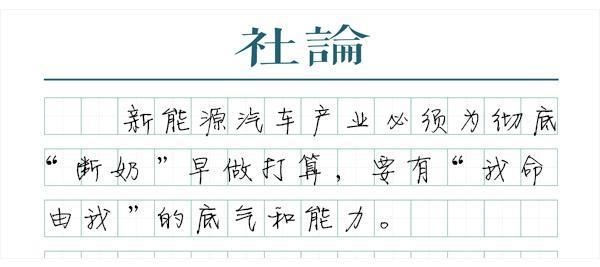 社論
新能源汽车产业必须为彻底
“断奶”早做打算，要有“我命
由我”的底气和能力。